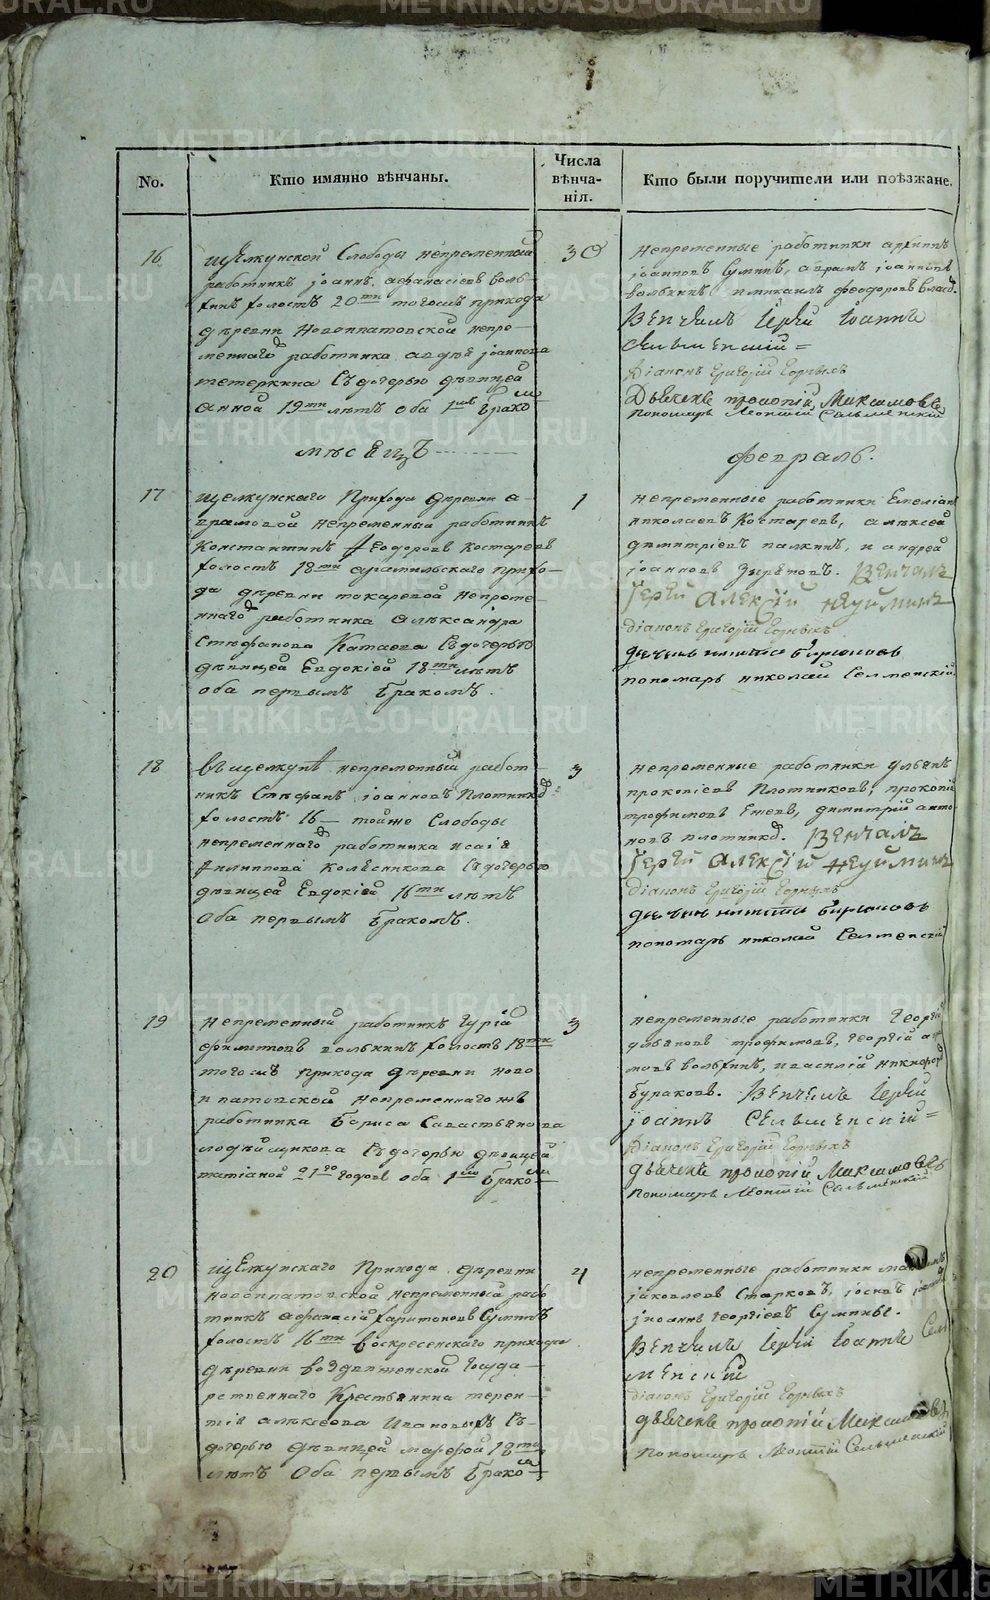 No.
Кто имянно вѣнчаны.
Числа
вѣнча-
нія.
Кто были поручители или поѣзжане.
16
щелкунской Слободы непременный
работникъ іоаннъ афанасіевъ воль-
хинъ холостъ 20ти тогожъ прихода
деревни Новоипатовской непре-
меннаго работника авдѣя іоаннова
тетеркина Съ дочерью дѣвицей
анной 19ти лѣтъ оба 1мъ Бракомъ
30
непременные работники архипъ
іоанновъ Суминъ, абрамъ іоанновъ
вольхинъ и михаилъ феодоровъ
Венчалъ Іерей Іоаннъ
Сельменскій
Діаконъ Григорій Горныхъ
Дьячекъ прокопій Максимовъ
пономарь Леонтій Сельменскій
мѣсецъ
февраль.
17
щелкунскаго Прихода деревни а-
врамовой непременный работникъ
Константинъ Феодоровъ Костаревъ
холостъ 18ти арамильскаго прихо-
да деревни токаревой непреме-
ннаго работника Александра
Стефанова Катаева Съ дочерью
дѣвицей Евдокіей 18ти лѣтъ
оба первымъ Бракомъ.
1
непременные работники Емеліанъ
николаевъ Костаревъ, алексей
димитріевъ палкинъ, и андрей
іоанновъ Зыряновъ. Венчалъ
Іерей Алексій Неуйминъ
діаконъ Григорій Горныхъ
дьячекъ никита Бирюковъ
пономарь николай Селменскій
18
въ щелкунѣ непременный работ-
никъ Стефанъ іоанновъ Плотниковъ
холостъ 16 тойже Слободы
непременнаго работника исаія
Филиппова Колесникова Съ дочерью
дѣвицей Евдокіей 16ти лѣтъ
Оба первымъ Бракомъ.
3
непременные работники ульянъ
прокопіевъ Плотниковъ, прокопій
трофимовъ Ежевъ, димитрій анто-
новъ плотниковъ. Венчалъ
Іерей Алексій Неуйминъ
Діаконъ Григорій Горныхъ
дьячекъ никита Бирюковъ
пономарь николай Селменскій
19
непременный работникъ Гурій
вольхинъ холостъ 18ти
тогожъ прихода деревни ново
ипатовской непременнагожъ
работника Бориса Савастьянова
Съ дочерью дѣвицей
татіаной 21го годовъ оба 1мъ Бракомъ
3
непременные работники Георгій
ульяновъ трофимовъ, георгій
вольхинъ, и василій никифоровъ
Бураковъ. Венчалъ Іерей
іоаннъ Сельменскій
Діаконъ Григорій Горныхъ
дьячекъ прокопій Максимовъ
пономарь Леонтій Сельменскій
20
щелкунскаго Прихода деревни
новоипатовской непременный рабо
тникъ афанасій харитоновъ Суминъ
холостъ 16ти воскресенскаго прихода
деревни воздвиженской Госуда-
рственнаго Крестьянина терен-
тія алексеева Ивановыхъ Съ-
дочерью дѣвицей марфой 18ти
лѣтъ Оба первымъ Бракомъ
4
непременные работники
іаковлевъ Старковъ, іосифъ
іоаннъ георгіевъ Сумины.
Венчалъ Іерей Іоаннъ Сель
менскій
діаконъ Григорій Горныхъ
дьячекъ прокопій Максимовъ
пономарь Леонтій Сельменскій
METRIKI.GASO-URAL.RU